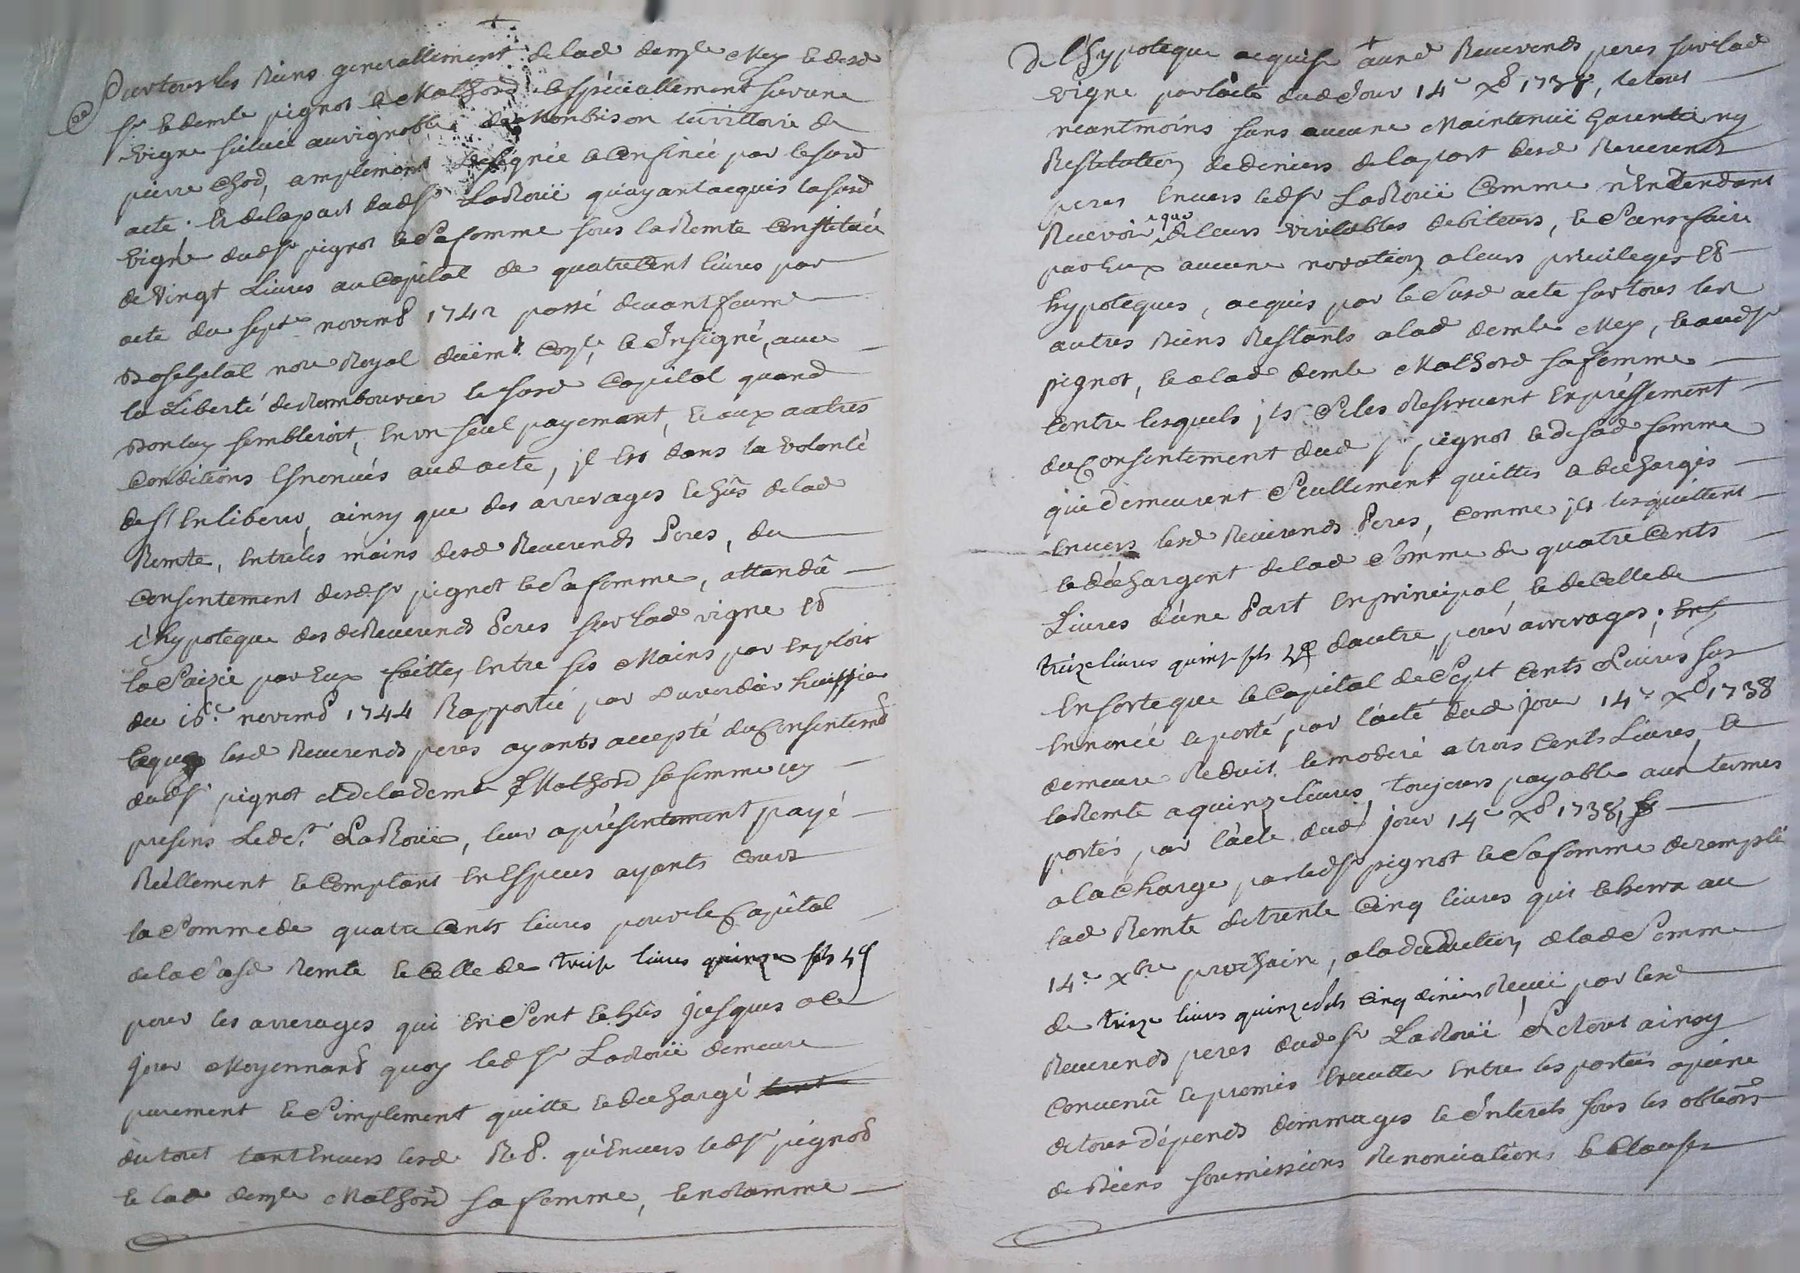 Sur tous les biens generallement de lad demlle Mey et desd
Sr et demlle pignot et Mathord et spéciallement sur une
vigne scituée au vignoble de Monbison territoire de
pierre Chod, amplement designée et confinée par le susd
acte. Et de la part dudSr LaRoüé qui ayant acquis la susd
vigne dudSr pignot et Sa femme sous la Rente Constituée
de vingt Livres au Capital de quatre Cent livres par
acte du sept novemb 1742 passé devant
nore Royal et Insigné, avec
la Liberté de Rembourcer le susd Capital quand
bon luy sembleroit, en un seul payement, et aux autres
Conditions Enoncées aud acte, jl est dans la volonté
de s'en liberer, ainsy que des arrerages echûs de lad
Rente, entre les mains desd Reverends Peres, du
consentement desdSr pignot et Sa femme, attendû
l'hypoteque desd Reverends Peres sur lad vigne et
la Saizie par Eux faitte entre ses Mains par exploit
du novemb 1744 Rapportée par huissier
lesd Reverends peres ayants accepté du Consentemt
dudSr pignot et de la deme Mathord sa femme icy
presens Ledt Sr LaRoüé, leur a présentement payé
Réellement et Comptant en Especes ayants cours
la Somme de quatre Cents livres pour le Capital
de la Susd Rente et Celle de treize livres quinze sols
pour les arrerages qui en Sont echûs jusques a ce
jour Moyennant quoy led Sr LaRoüé demeure
purement et Simplement quitte et déchargé tant
du tout tant Envers lesd R P. qu'Envers ledSr pignod
et lad demlle Mathord sa femme, et notamme
De l'hypoteque acquise auxd Reverends peres sur lad
vigne par l'acte dud Jour 14e Xb 1738, le tout
neantmoins sans aucune Maintenüe Garentie ny
Restitution de deniers de la part desd Reverends
peres envers ledSr LaRoüé Comme n'Entendant
Recevoir que de leurs veritables debiteurs, et Sans faire
par Eux aucune novation a leurs privileges et
hypoteques, acquis par le Susd acte sur tous les
autres biens Restants a lad demlle Mey, et audSr
pignot, et a lad demlle Mathord sa femme
contre lesquels jls Se les Reservent Expréssement
du Consentement dud Sr pignot et de sad femme
qui demeurent Seullement quittes et déchargés
envers lesd Reverends Peres, comme jls les quittent
et déchargent de lad Somme de quatre Cents
Livres d'une Part en principal, et de Celle de
treize livres quinze sols d'autre, pour arrerages;
En sorte que le Capital de Sept Cents Livres sus
Ennoncé et porté par l'acte dud jour 14e Xb 1738
demeure Reduit et moderé a trois Cents Livres, et
la Rente a quinze livres, toujours payable aux termes
portés par l'acte dud jour 14e Xb 1738,
a la Charge par ledSr pignot et Sa femme de remplir
lad Rente de trente Cinq livres qui echerra au
14e Xbre prochain, a la deduction de lad Somme
de treize livres quinze sols cinq deniers Receüe par lesd
Reverends peres dudSr LaRoüé Le tout ainsy
convenû et promis executter entre les parties a peine
de tous dépends dommages et Interets sous les obligons
de biens soumissions Renonciations et Clauses